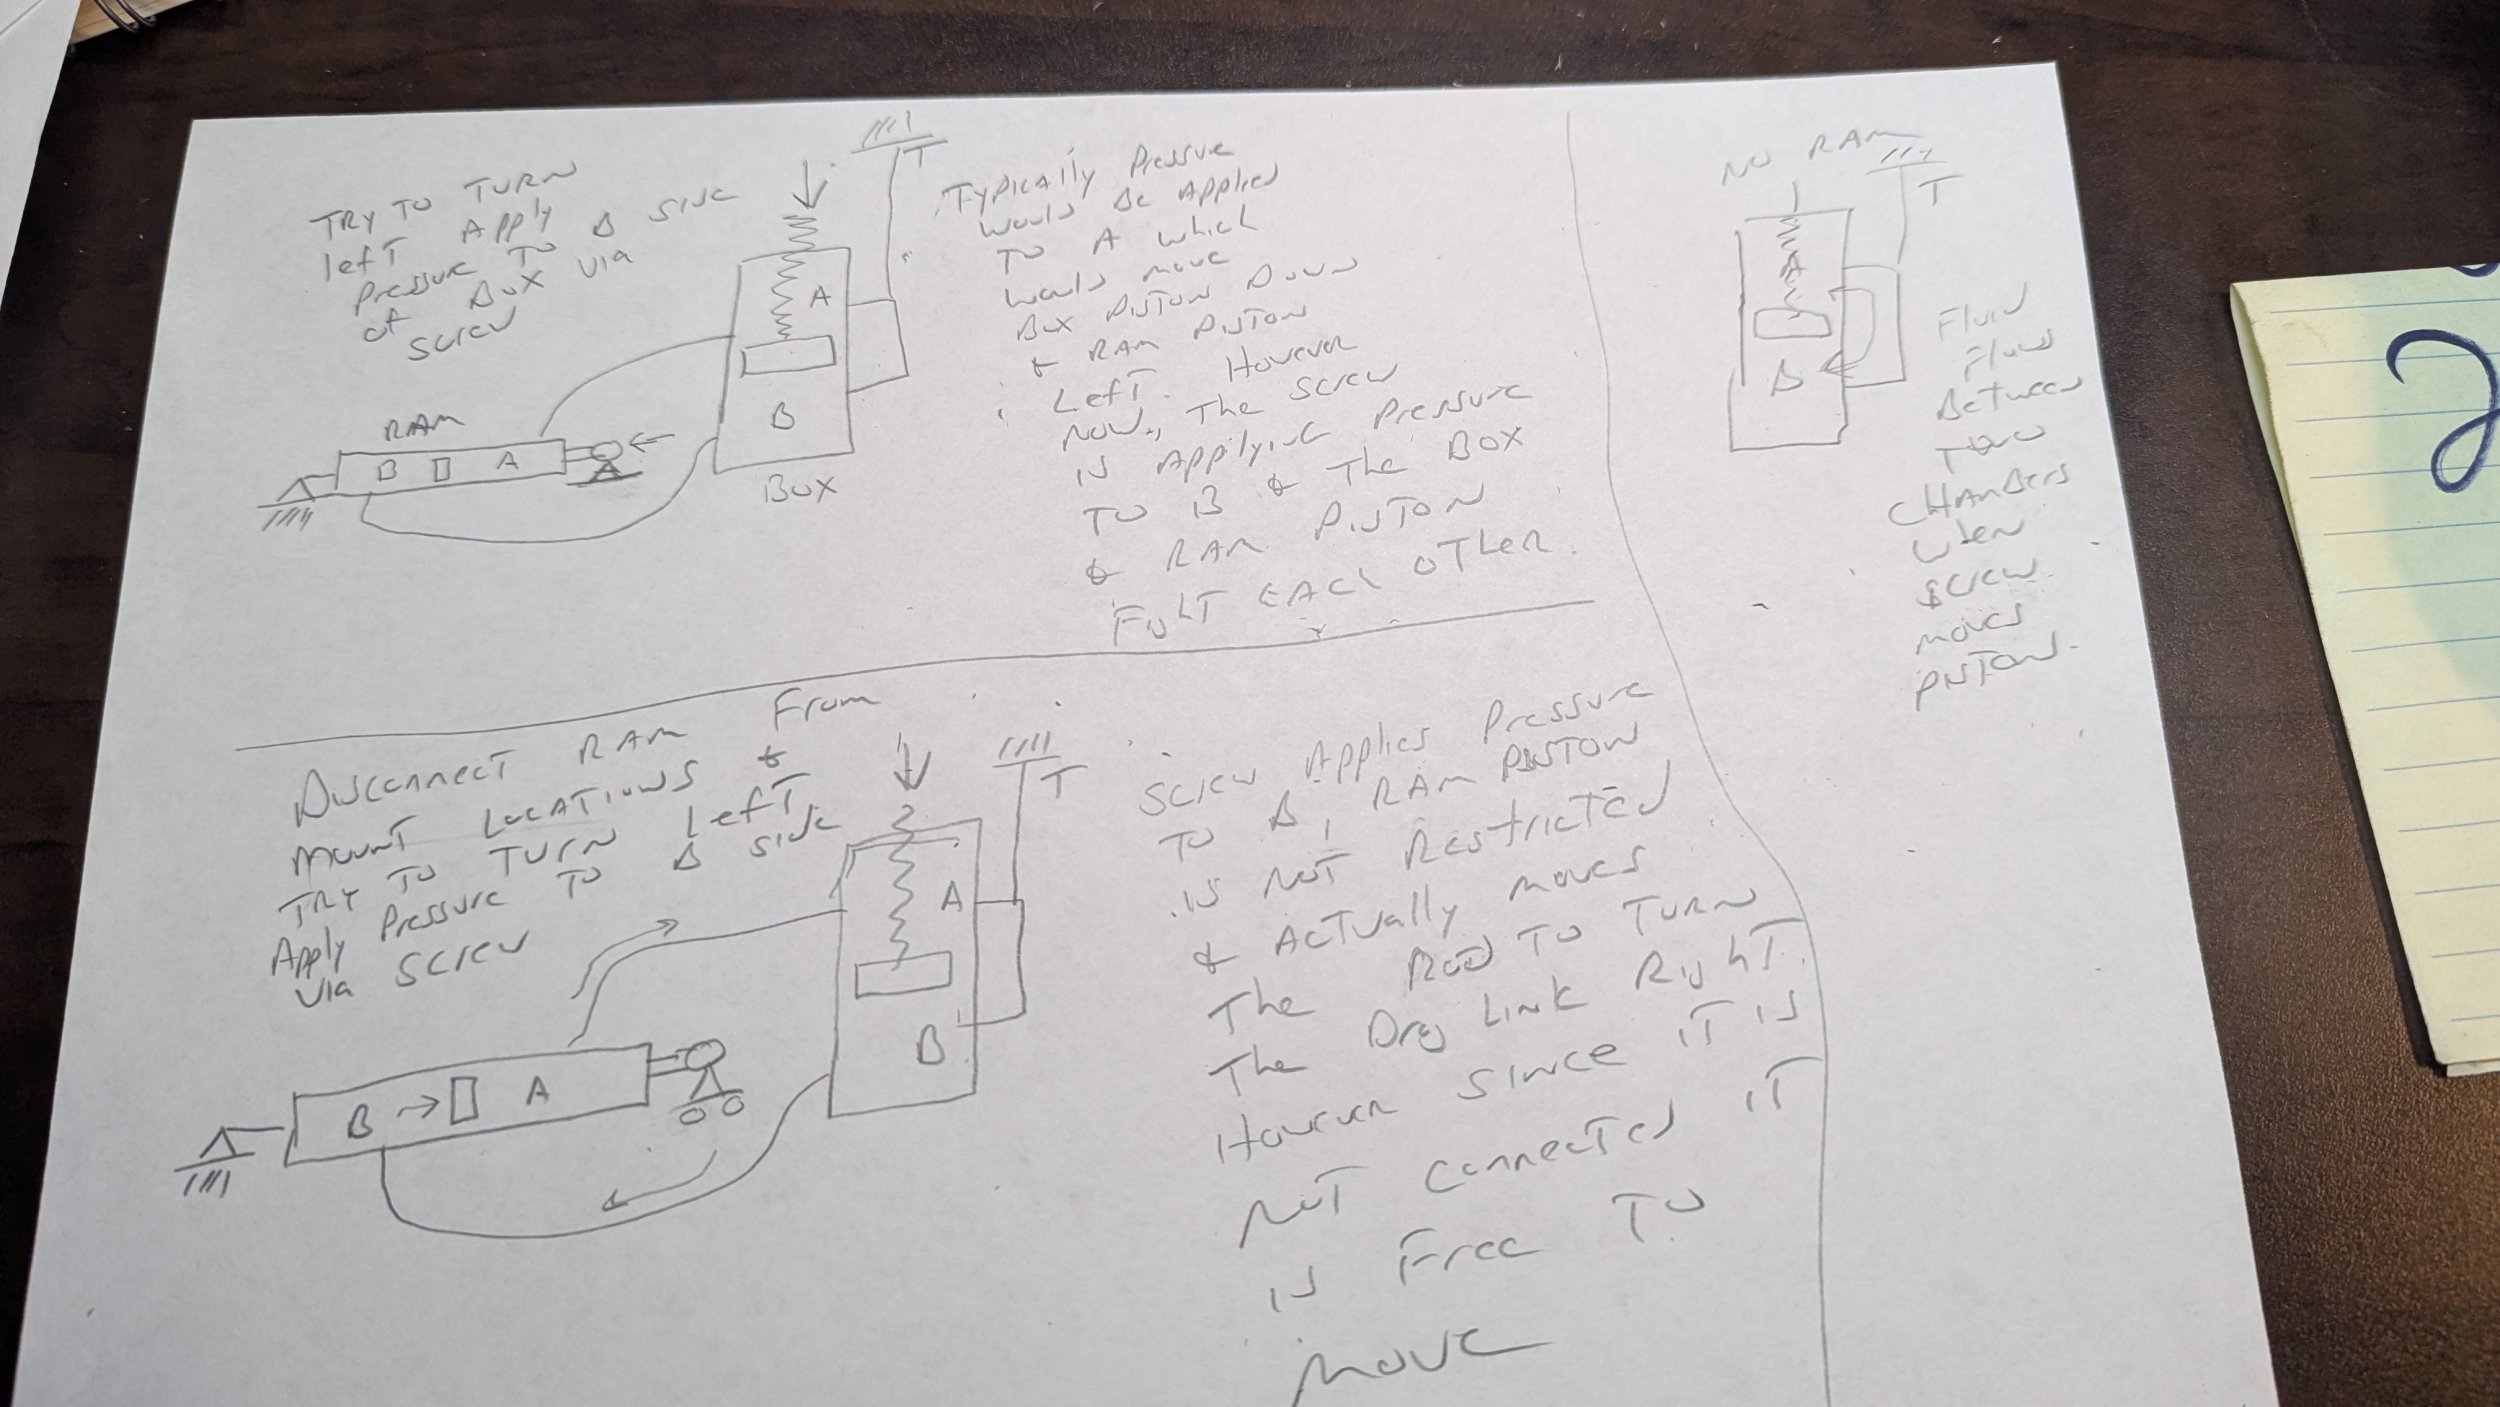 TRY TO TURN
LEFT APPLY
PRESSURE TO B SIDE
OF BOX VIA
SCREW
T
A
B
BOX
RAM
B A
TYPICALLY PRESSURE
WOULD BE APPLIED
TO A WHICH
WOULD MOVE
BOX PISTON DOWN
& RAM PISTON
LEFT. HOWEVER
NOW, THE SCREW
IS APPLYING PRESSURE
TO B & THE BOX
& RAM PISTON
FIGHT EACH OTHER.
NO RAM
T
A
B
FLUID
FLOWS
BETWEEN
TWO
CHAMBERS
WHEN
SCREW
MOVES
PISTON.
DISCONNECT RAM FROM
MOUNT LOCATIONS &
TRY TO TURN LEFT.
APPLY PRESSURE TO B SIDE
VIA SCREW
T
A
B
B A
SCREW APPLIES PRESSURE
TO B, RAM PISTON
IS NOT RESTRICTED
& ACTUALLY MOVES
THE ROD TO TURN
THE DRAG LINK RIGHT.
HOWEVER SINCE IT IS
NOT CONNECTED IT
IS FREE TO
MOVE
2